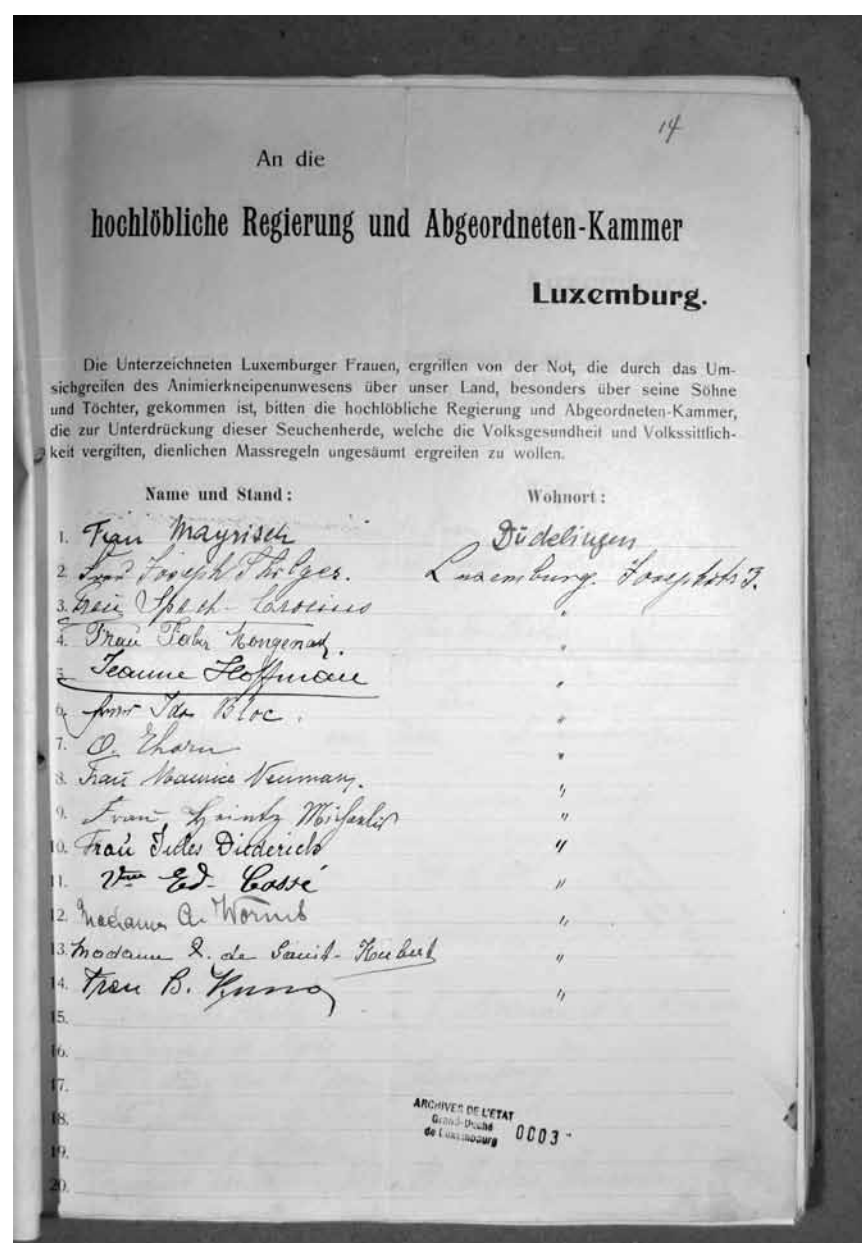 14
An die
hochlöbliche Regierung und Abgeordneten-Kammer
Luxemburg.
Die Unterzeichneten Luxemburger Frauen, ergriffen von der Not, die durch das Um-
sichgreifen des Animierkneipenunwesens über unser Land, besonders über seine Söhne
und Töchter, gekommen ist, bitten die hochlöbliche Regierung und Abgeordneten-Kammer,
die zur Unterdrückung dieser Seuchenherde, welche die Volksgesundheit und Volkssittlich-
keit vergiften, dienlichen Massregeln ungesäumt ergreifen zu wollen.
Name und Stand: Wohnort:
1. Frau Mayrisch Düdelingen
2. Frau Joseph Luxemburg. Josephstr 3.
3. Frau "
4. Frau Faber "
5. Jeanne Hoffman "
6. Frau Ida Bloc. "
7. O. Thorn "
8. Frau Maurice Neumann. "
9. Frau Heintz Michaelis "
10. Frau Jules Diederich "
11. Vve Ed. Cossé "
12. Madame A. Worms "
13. Madame de Saint-Hubert "
14. Frau B. "
15.
16.
17.
18.
19.
20.
ARCHIVES DE L'ETAT
Grand-Duché
de Luxembourg 0003